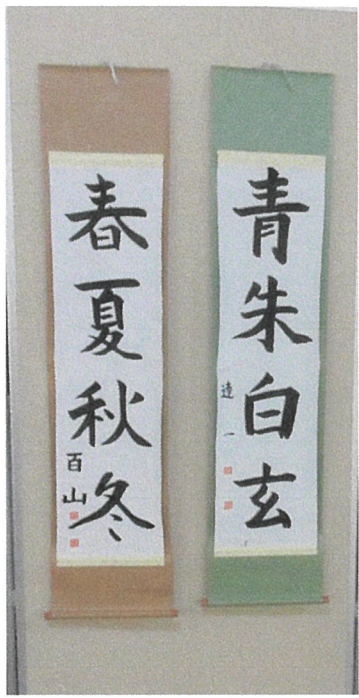 青朱白玄
達一
春夏秋冬
百山